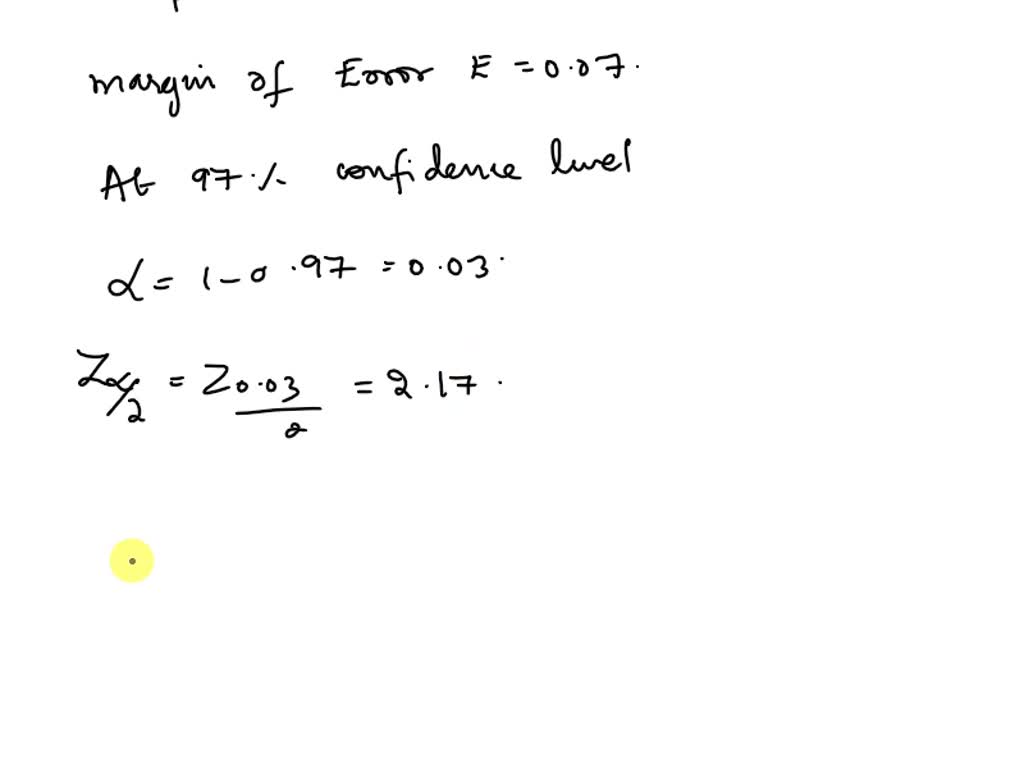 margin of Error E = 0.07.
At 97% confidence level
α = 1 - 0.97 = 0.03.
Zα/2 = Z0.03/2 = 2.17.